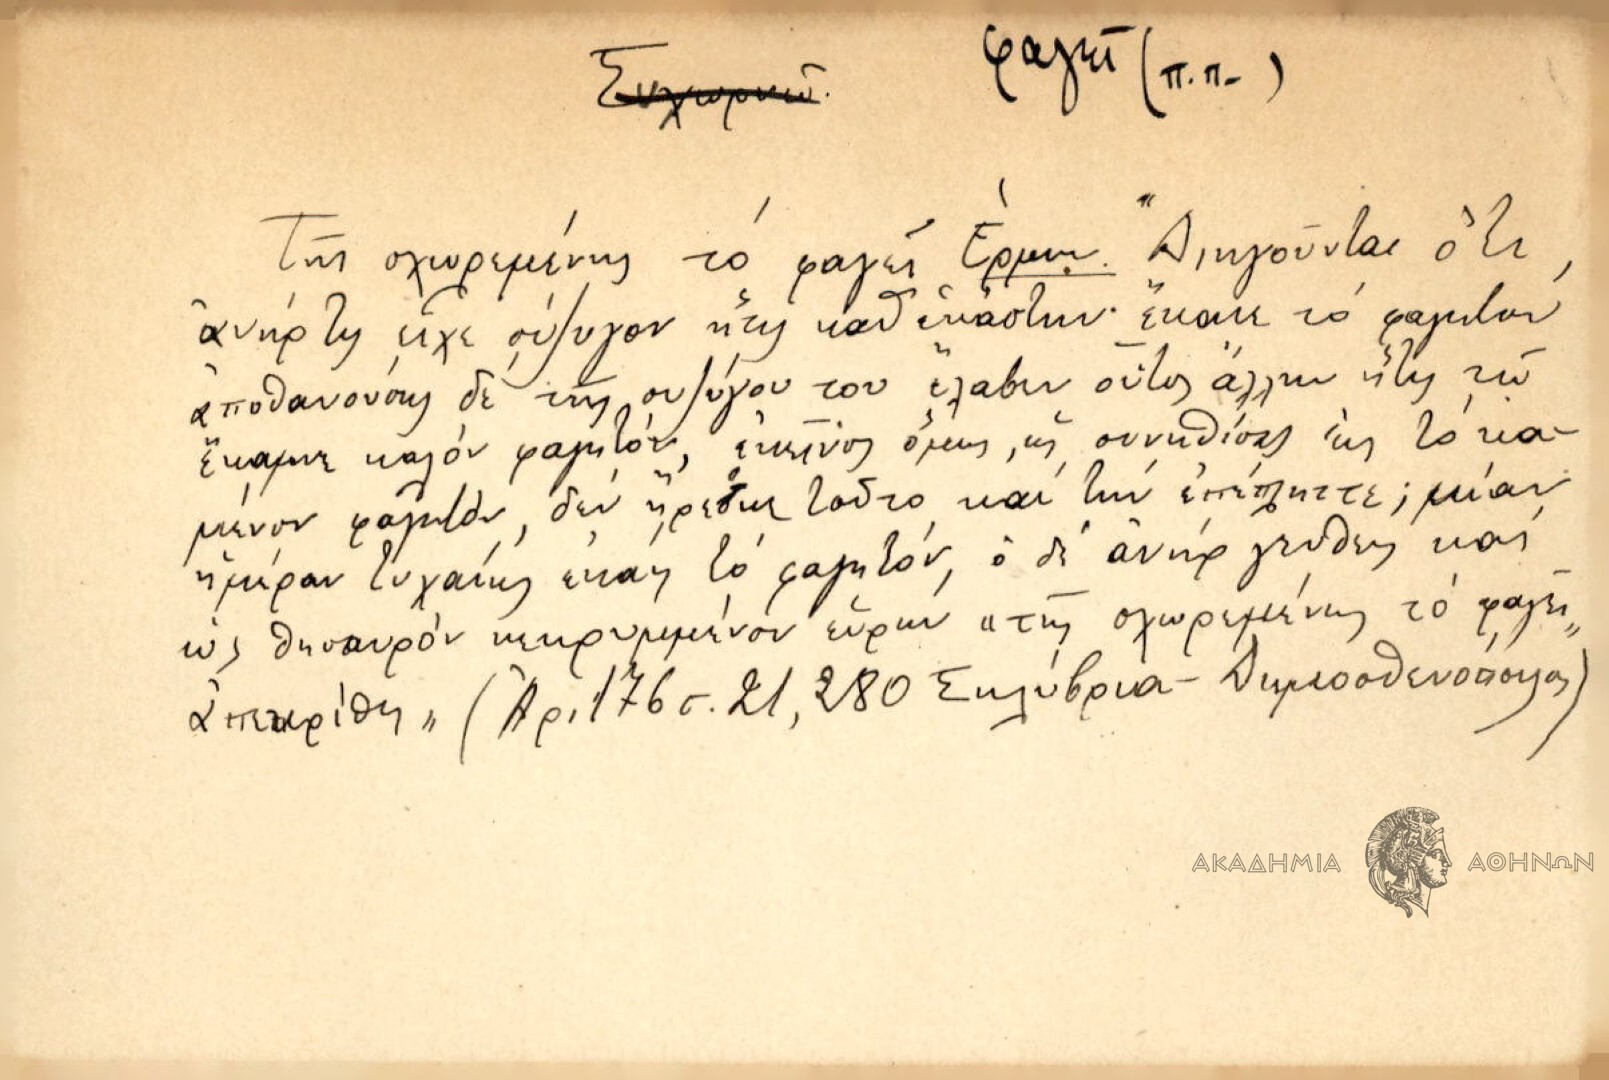 Συχωρνῶ. φαγεῖ (π.π-)
Τῆς σχωρεμένης τό φαγεῖ Ἑρμην. "Διηγοῦνται ὅτι,
ἀνήρ τις εἶχε σύζυγον ἥτις καθ' ἑκάστην ἔκαιε τό φαγητόν
ἀποθανούσης δέ τῆς συζύγου του ἔλαβεν οὗτος ἄλλην ἥτις τῷ
ἔκαμνε καλόν φαγητόν, ἐκεῖνος ὅμως, ὡς συνηθίσας εἰς τό κα-
μένον φαγητόν, δέν ἤρεσκε τοῦτο καί τήν ἐπέπληττε; μίαν
ἡμέραν τυχαίως ἐκάη τό φαγητόν, ὁ δέ ἀνήρ γευθείς καί
ὡς θησαυρόν κεκρυμμένον εὑρών "τῆς σχωρεμένης τό φαγεῖ"
ἀπεκρίθη" (Ἀρ. 176 σ. 21, 280 Σηλύβρια - Δημοσθενόπουλος)
ΑΚΑΔΗΜΙΑ ΑΘΗΝΩΝ